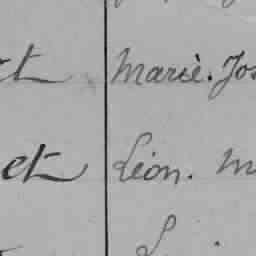 et Marie. Jos
et Léon. M